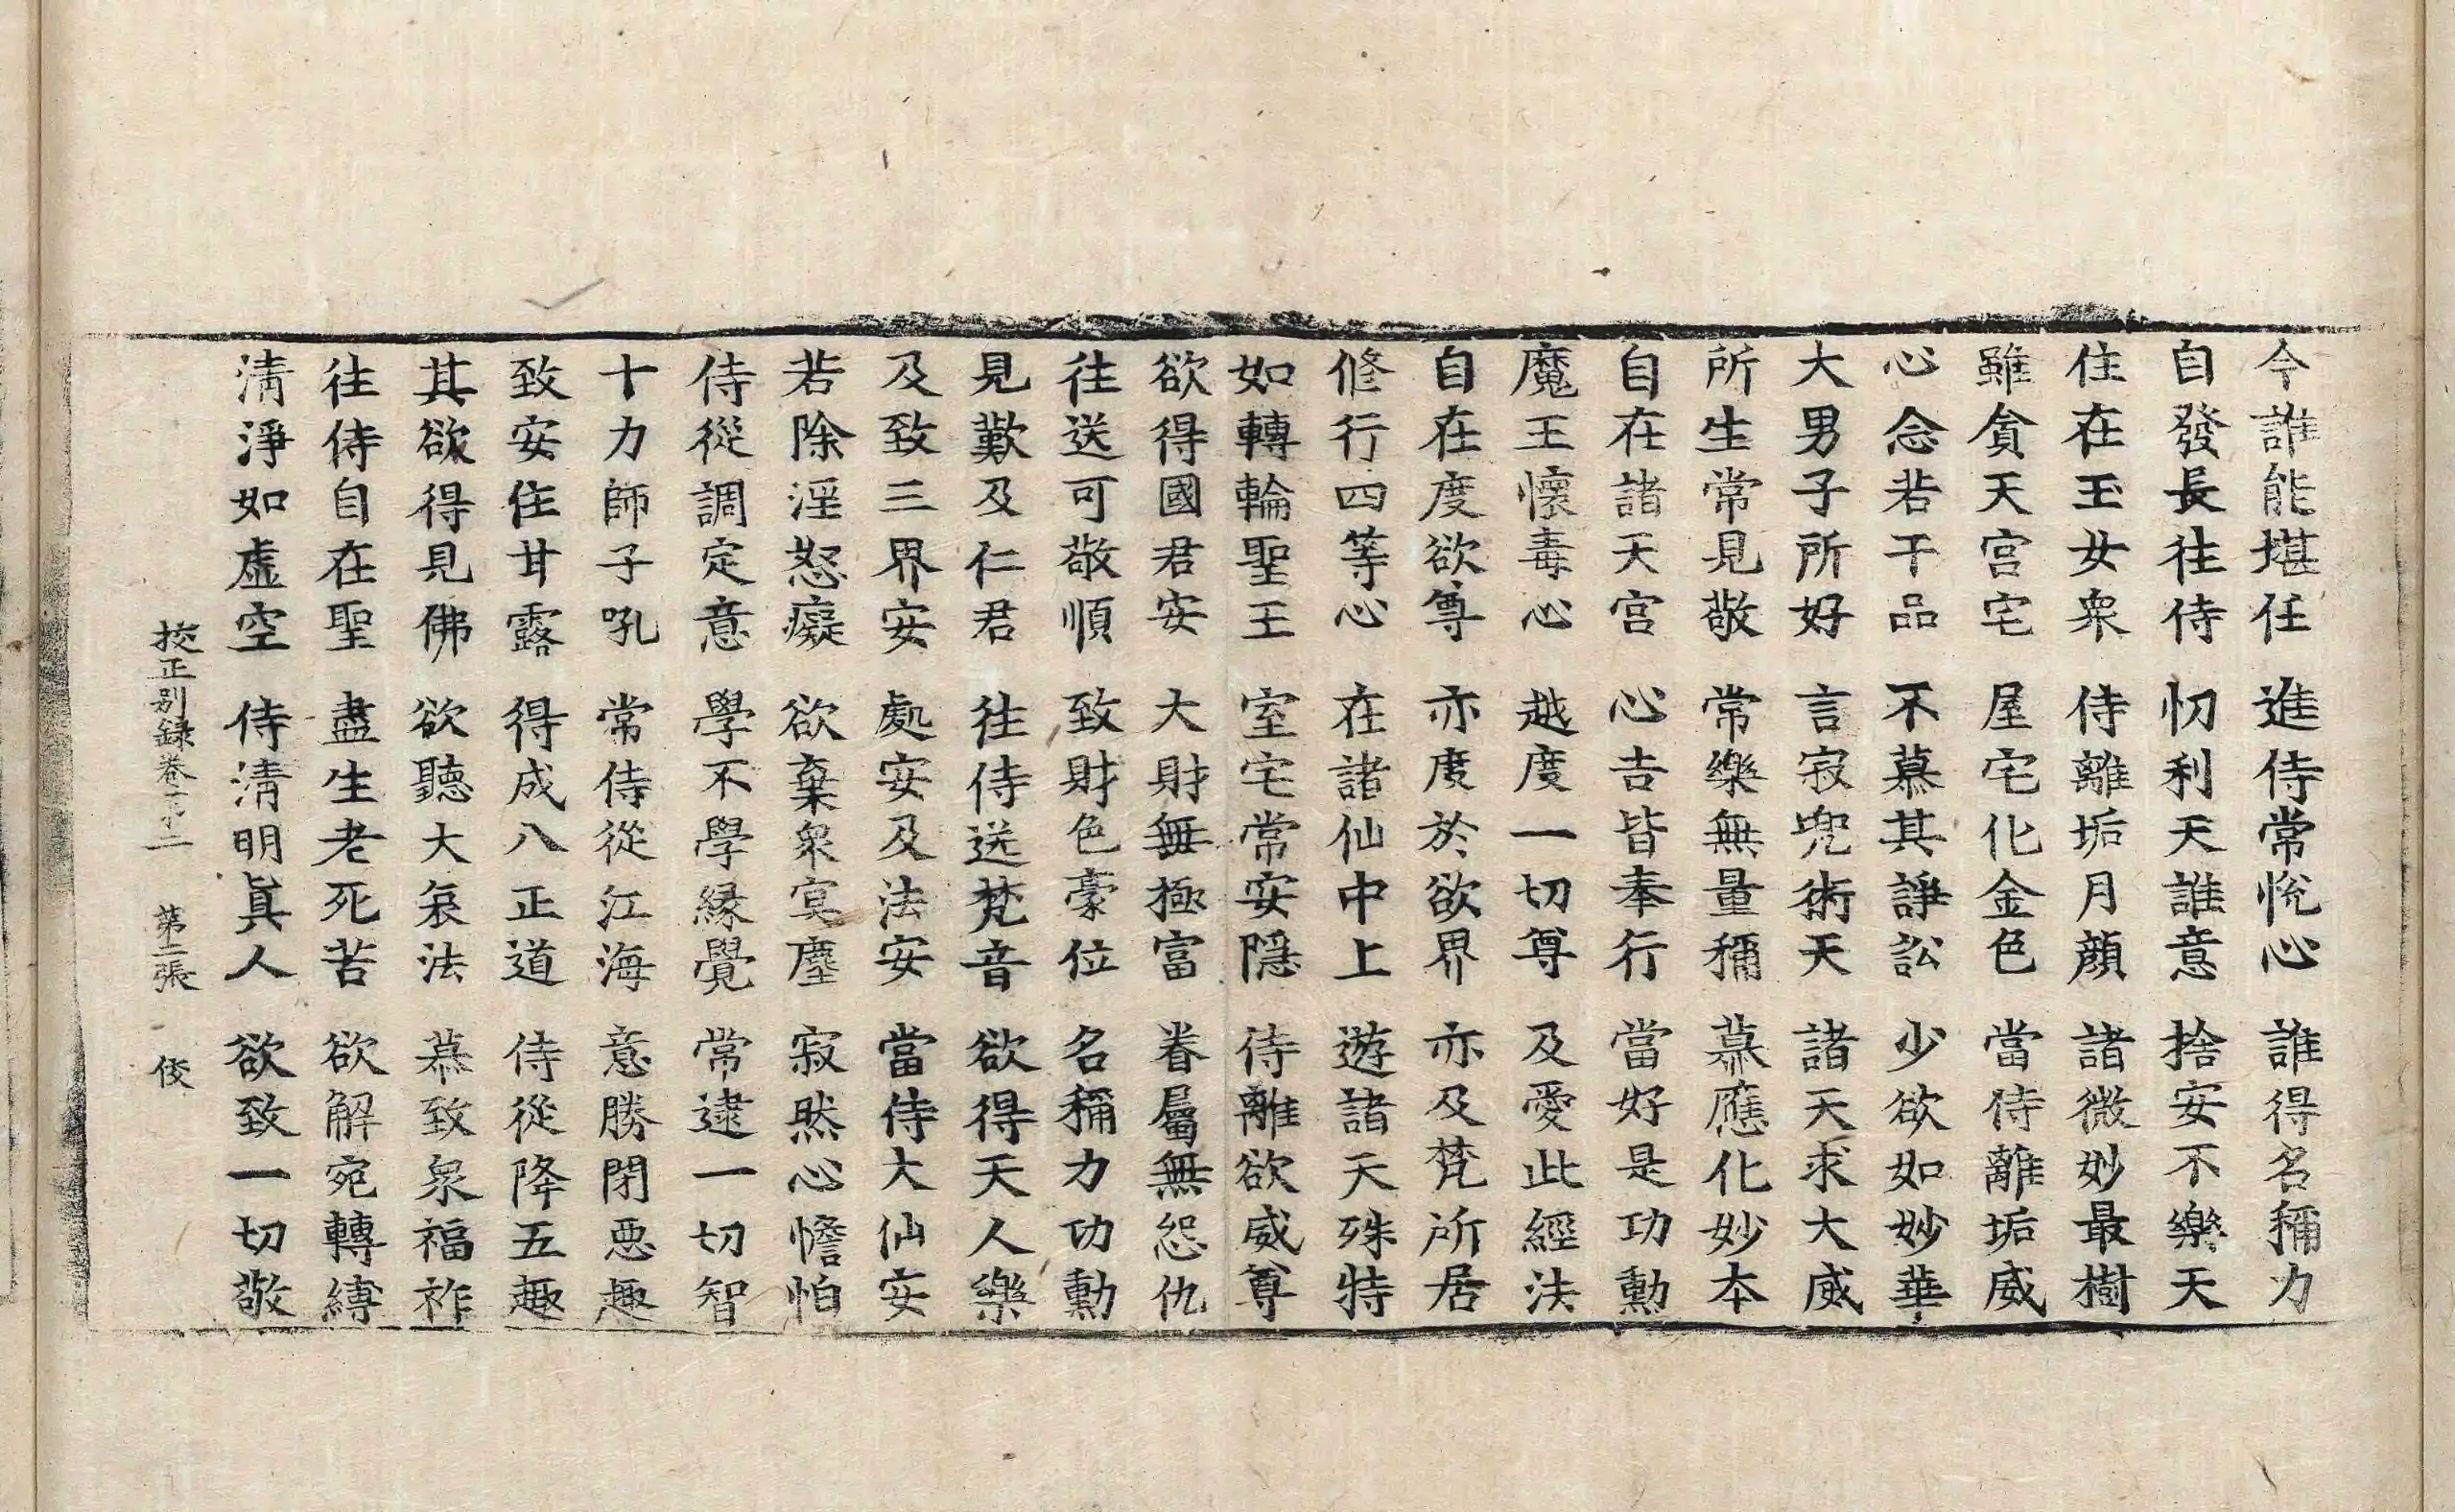 今誰能堪任　進侍常恱心　誰得名稱力
自發長往侍　忉利天誰意　捨安不樂天
住在玉女衆　侍離垢月顏　諸微妙最樹
雖貪天宮宅　屋宅化金色　當侍離垢威
心念若干品　不慕其諍訟　少欲如妙華
大男子所好　言寂兜術天　諸天求大威
所生常見敬　常樂無量稱　慕應化妙本
自在諸天宮　心吉皆奉行　當好是功勳
魔王懷毒心　越度一切尊　及愛此經法
自在度欲尊　亦度於欲界　亦及梵所居
修行四等心　在諸仙中上　遊諸天殊特
如轉輪聖王　室宅常安隱　侍離欲威尊
欲得國君安　大財無極富　眷屬無怨仇
往送可敬順　致財色豪位　名稱力功勳
見歎及仁君　往侍送梵音　欲得天人樂
及致三界安　處安及法安　當侍大仙安
若除淫怒癡　欲棄衆冥塵　寂然心憺怕
侍從調定意　學不學緣覺　常逮一切智
十力師子吼　常侍從江海　意勝閉惡趣
致安住甘露　得成八正道　侍從降五趣
其欲得見佛　欲聽大哀法　慕致衆福祚
往侍自在聖　盡生老死苦　欲解宛轉縛
淸淨如虛空　侍淸明眞人　欲致一切敬
挍正別録卷二　第二張　俊